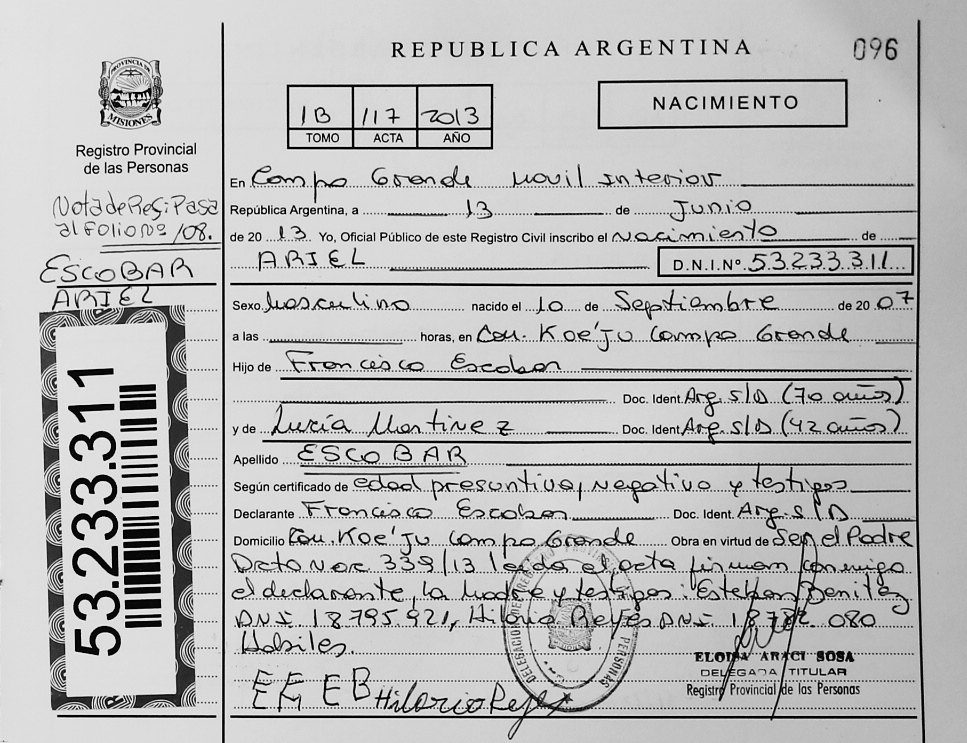 REPUBLICA ARGENTINA
096
PROVINCIA DE
MISIONES
Registro Provincial
de las Personas
1B 117 2013
TOMO ACTA AÑO
NACIMIENTO
Nota de Ref: Pasa
al Folio Nº 108.
ESCOBAR
ARIEL
53.233.311
En Campo Grande Movil Interior
República Argentina, a 13 de Junio
de 20 13 Yo, Oficial Público de este Registro Civil inscribo el Nacimiento de
ARIEL D.N.I.Nº 53.233.311
Sexo Masculino nacido el 10 de Septiembre de 20 07
a las horas, en Com. Koe'Ju Campo Grande
Hijo de Francisco Escobar
Doc. Ident. Arg. S/D (70 años)
y de Lucía Martinez Doc. Ident. Arg. S/D (42 años)
Apellido ESCOBAR
Según certificado de edad presuntiva, negativo y testigos
Declarante Francisco Escobar Doc. Ident. Arg. S/D
Domicilio Com. Koe'Ju Campo Grande Obra en virtud de Ser el Padre
Dcto Nac 339/13 leida el acta firman conmigo
el declarante, la madre y testigos: Esteban Benitez
DNI 18795921, Hilario Reyes DNI 18782 080
Habiles.
EE EB Hilario Reyes
EM
ELOISA ARACI SOSA
DELEGADA TITULAR
Registro Provincial de las Personas